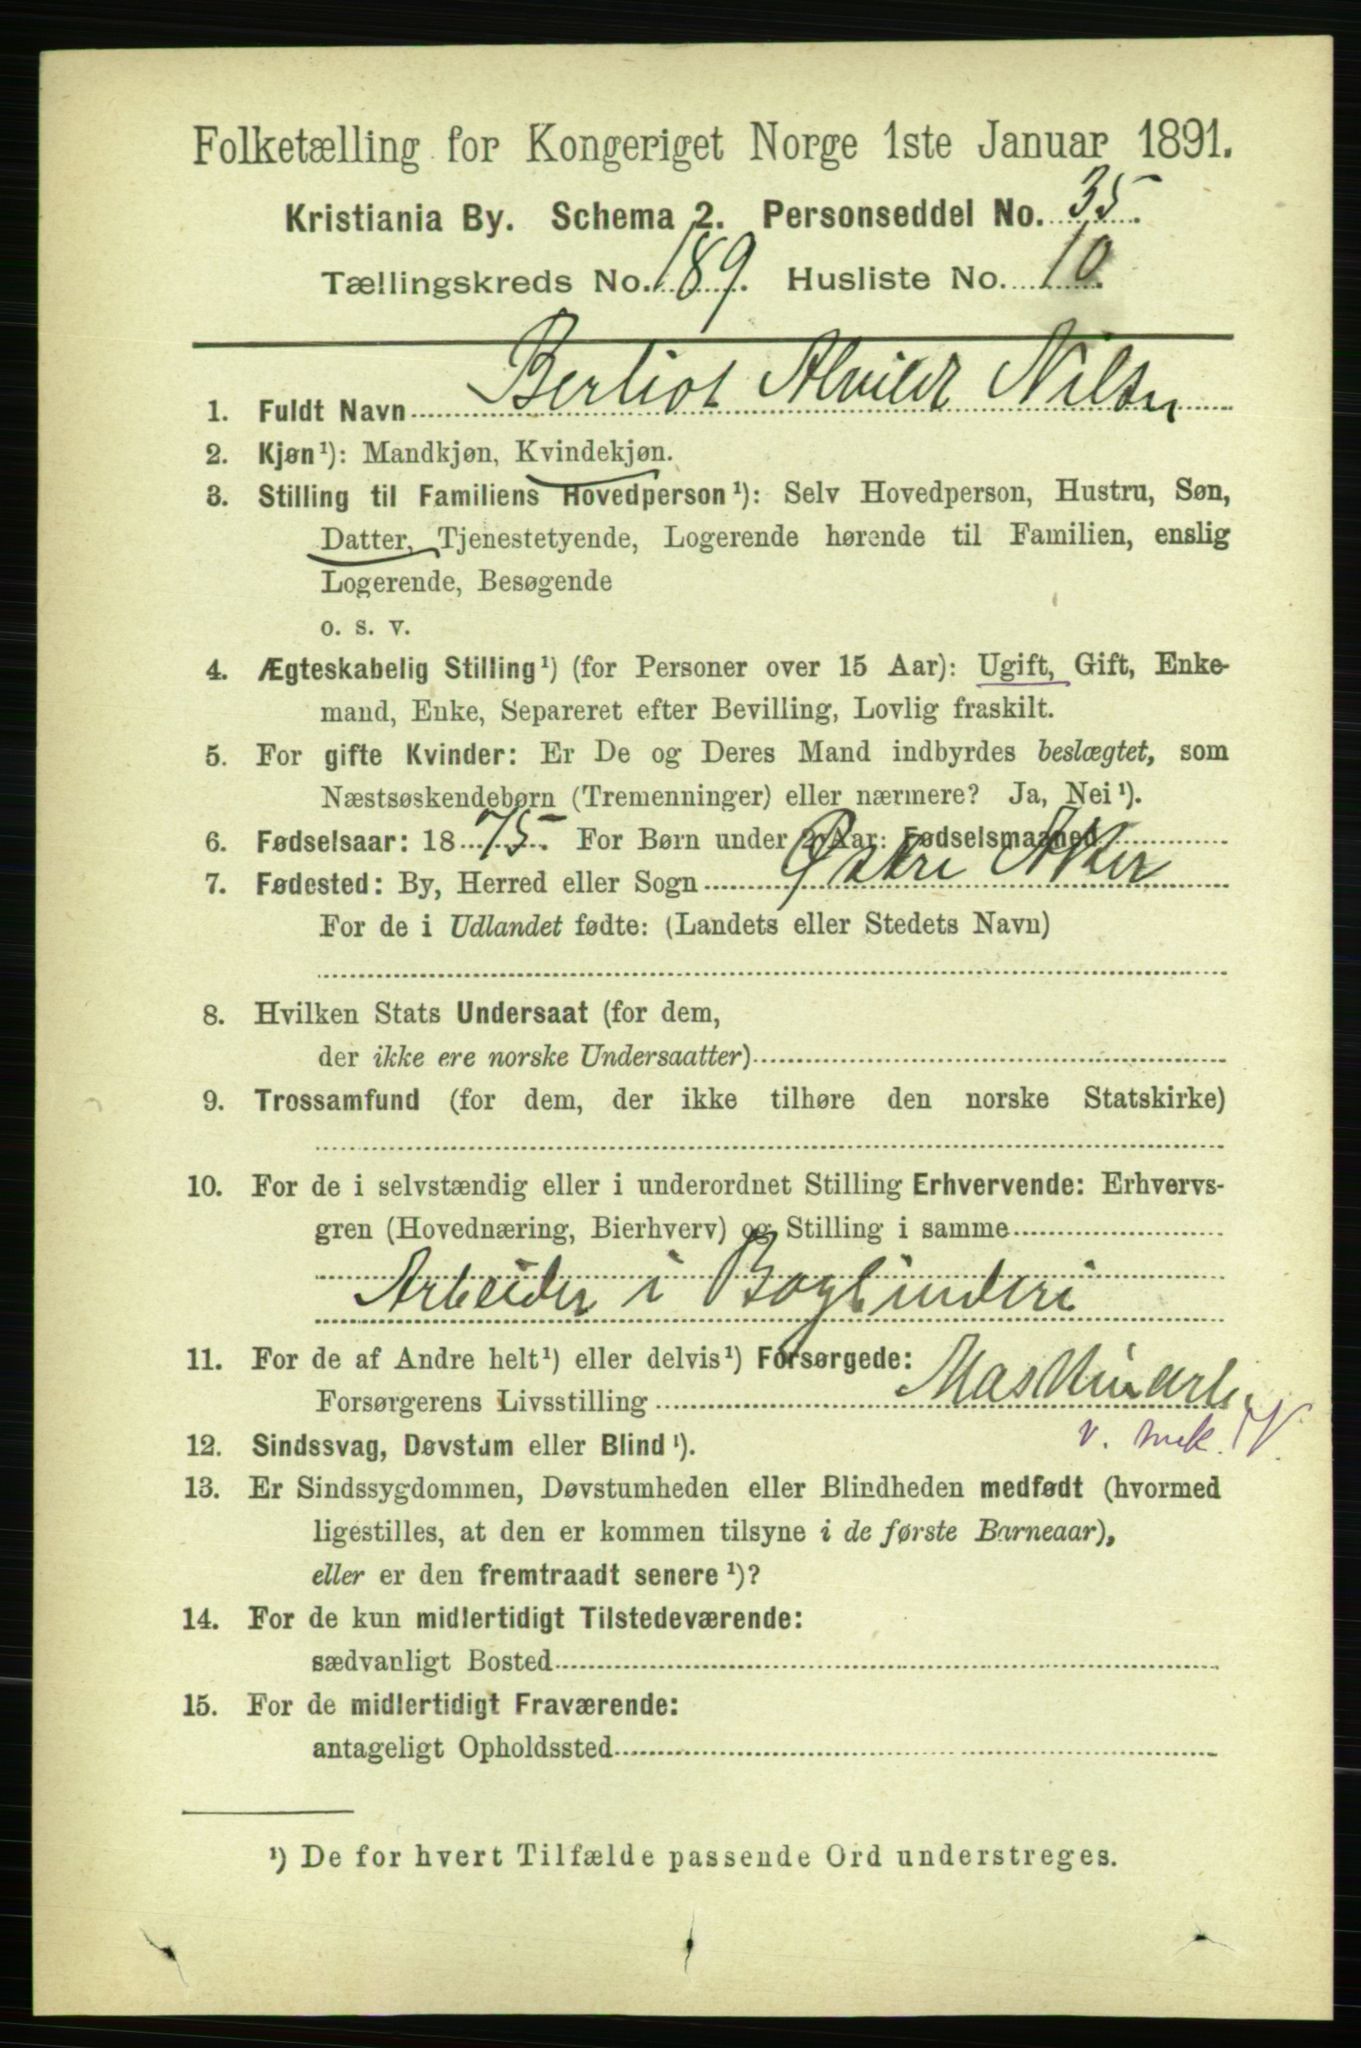 Folketælling for Kongeriget Norge 1ste Januar 1891.
Kristiania By. Schema 2. Personseddel No. 35.
Tællingskreds No. 189. Husliste No. 10.
1. Fuldt Navn Berliot Alvilde Nilsen
2. Kjøn¹): Mandkjøn, Kvindekjøn.
3. Stilling til Familiens Hovedperson¹): Selv Hovedperson, Hustru, Søn,
Datter, Tjenestetyende, Logerende hørende til Familien, enslig
Logerende, Besøgende
o. s. v.
4. Ægteskabelig Stilling¹) (for Personer over 15 Aar): Ugift, Gift, Enke-
mand, Enke, Separeret efter Bevilling, Lovlig fraskilt.
5. For gifte Kvinder: Er De og Deres Mand indbyrdes beslægtet, som
Næstsøskendebørn (Tremenninger) eller nærmere? Ja, Nei¹).
6. Fødselsaar: 1875. For Børn under 2 Aar: Fødselsmaaned
7. Fødested: By, Herred eller Sogn Østre Aker
For de i Udlandet fødte: (Landets eller Stedets Navn)
8. Hvilken Stats Undersaat (for dem,
der ikke ere norske Undersaatter)
9. Trossamfund (for dem, der ikke tilhøre den norske Statskirke)
10. For de i selvstændig eller i underordnet Stilling Erhvervende: Erhvervs-
gren (Hovednæring, Bierhverv) og Stilling i samme
Arbeider i Bogbinderi
11. For de af Andre helt¹) eller delvis¹) Forsørgede:
Forsørgerens Livsstilling Maskinarb.
v. mek. V.
12. Sindssvag, Døvstum eller Blind¹).
13. Er Sindssygdommen, Døvstumheden eller Blindheden medfødt (hvormed
ligestilles, at den er kommen tilsyne i de første Barneaar),
eller er den fremtraadt senere¹)?
14. For de kun midlertidigt Tilstedeværende:
sædvanligt Bosted
15. For de midlertidigt Fraværende:
antageligt Opholdssted
¹) De for hvert Tilfælde passende Ord understreges.